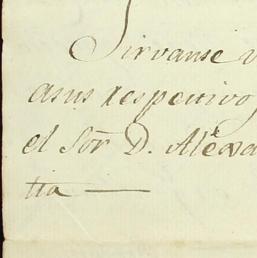 Sirvanse v
asus respectivo
el Sor D. Alexa
tia